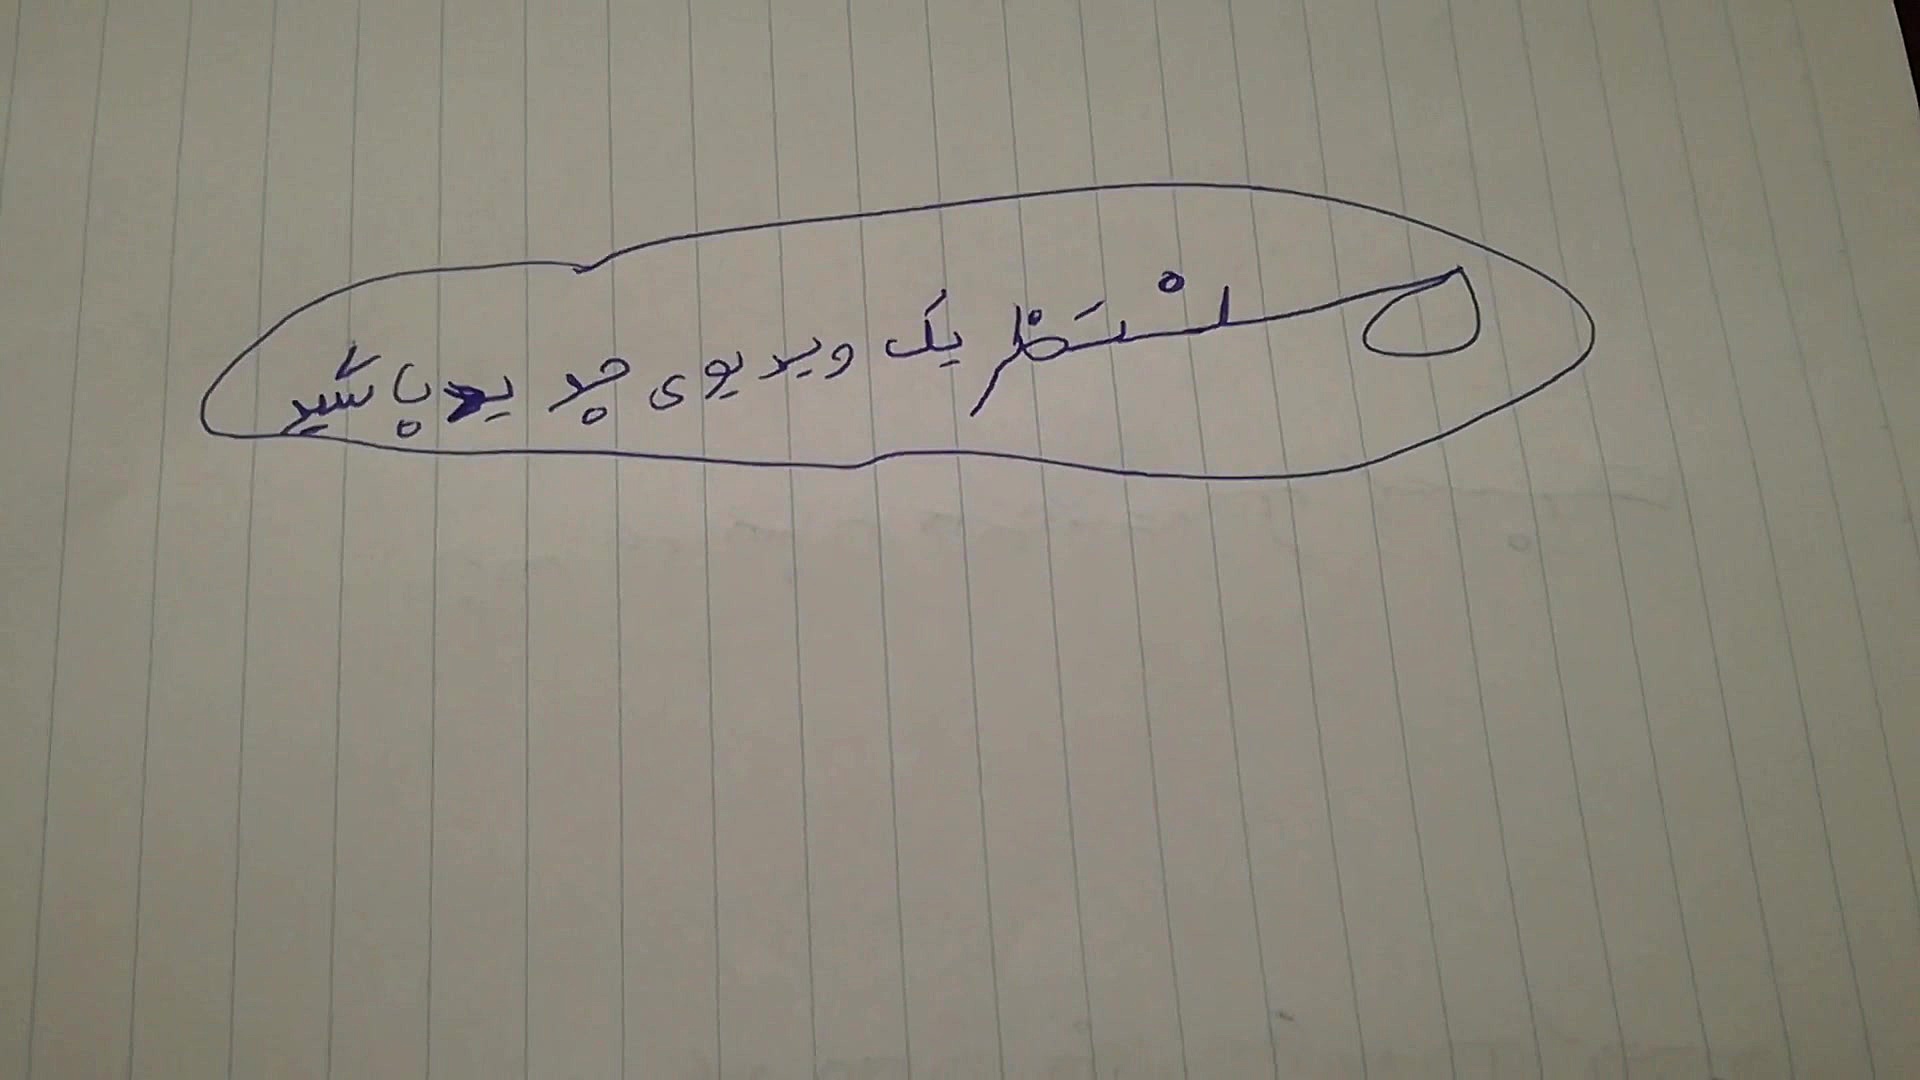 منتظر یک ویدیوی جدید باشید